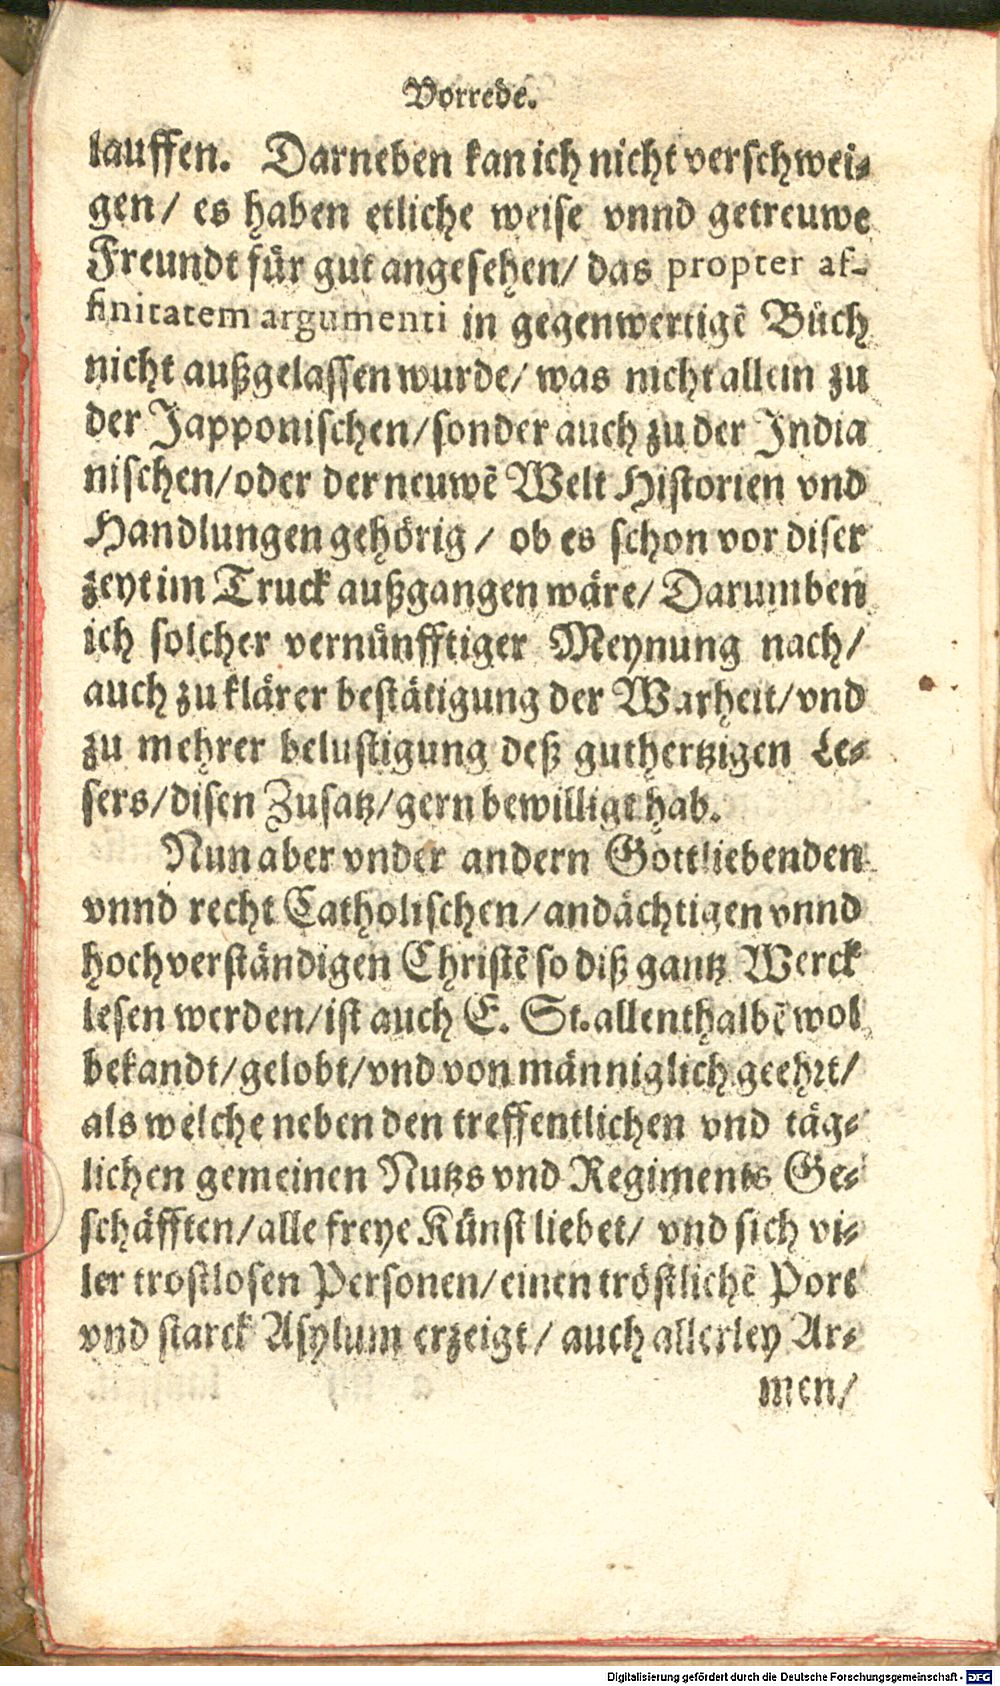 Vorrede.
lauffen. Darneben kan ich nicht verschwei⸗
gen/ es haben etliche weise vnnd getreuwe
Freundt für gut angesehen/ das propter af-
finitatem argumenti in gegenwertigē Büch
nicht außgelassen wurde/ was nicht allein zu
der Japponischen/ sonder auch zu der India
nischen/ oder der neuwē Welt Historien vnd
Handlungen gehörig/ ob es schon vor diser
zeyt im Truck außgangen wäre/ Darumben
ich solcher vernünfftiger Meynung nach/
auch zu klärer bestätigung der Warheit/ vnd
zu mehrer belustigung deß guthertzigen Le⸗
sers/ disen Zusatz/ gern bewilligt hab.
Nun aber vnder andern Gottliebenden
vnnd recht Catholischen/ andächtigen vnnd
hochverständigen Christē so diß gantz Werck
lesen werden/ ist auch E. St. allenthalbē wol
bekandt/ gelobt/ vnd von männiglich geehrt/
als welche neben den treffentlichen vnd täg⸗
lichen gemeinen Nutzs vnd Regiments Ge⸗
schäfften/ alle freye Künst liebet/ vnd sich vi⸗
ler trostlosen Personen/ einen tröstlichē Port
vnd starck Asylum erzeigt/ auch allerley Ar⸗
men/
Digitalisierung gefördert durch die Deutsche Forschungsgemeinschaft - DFG